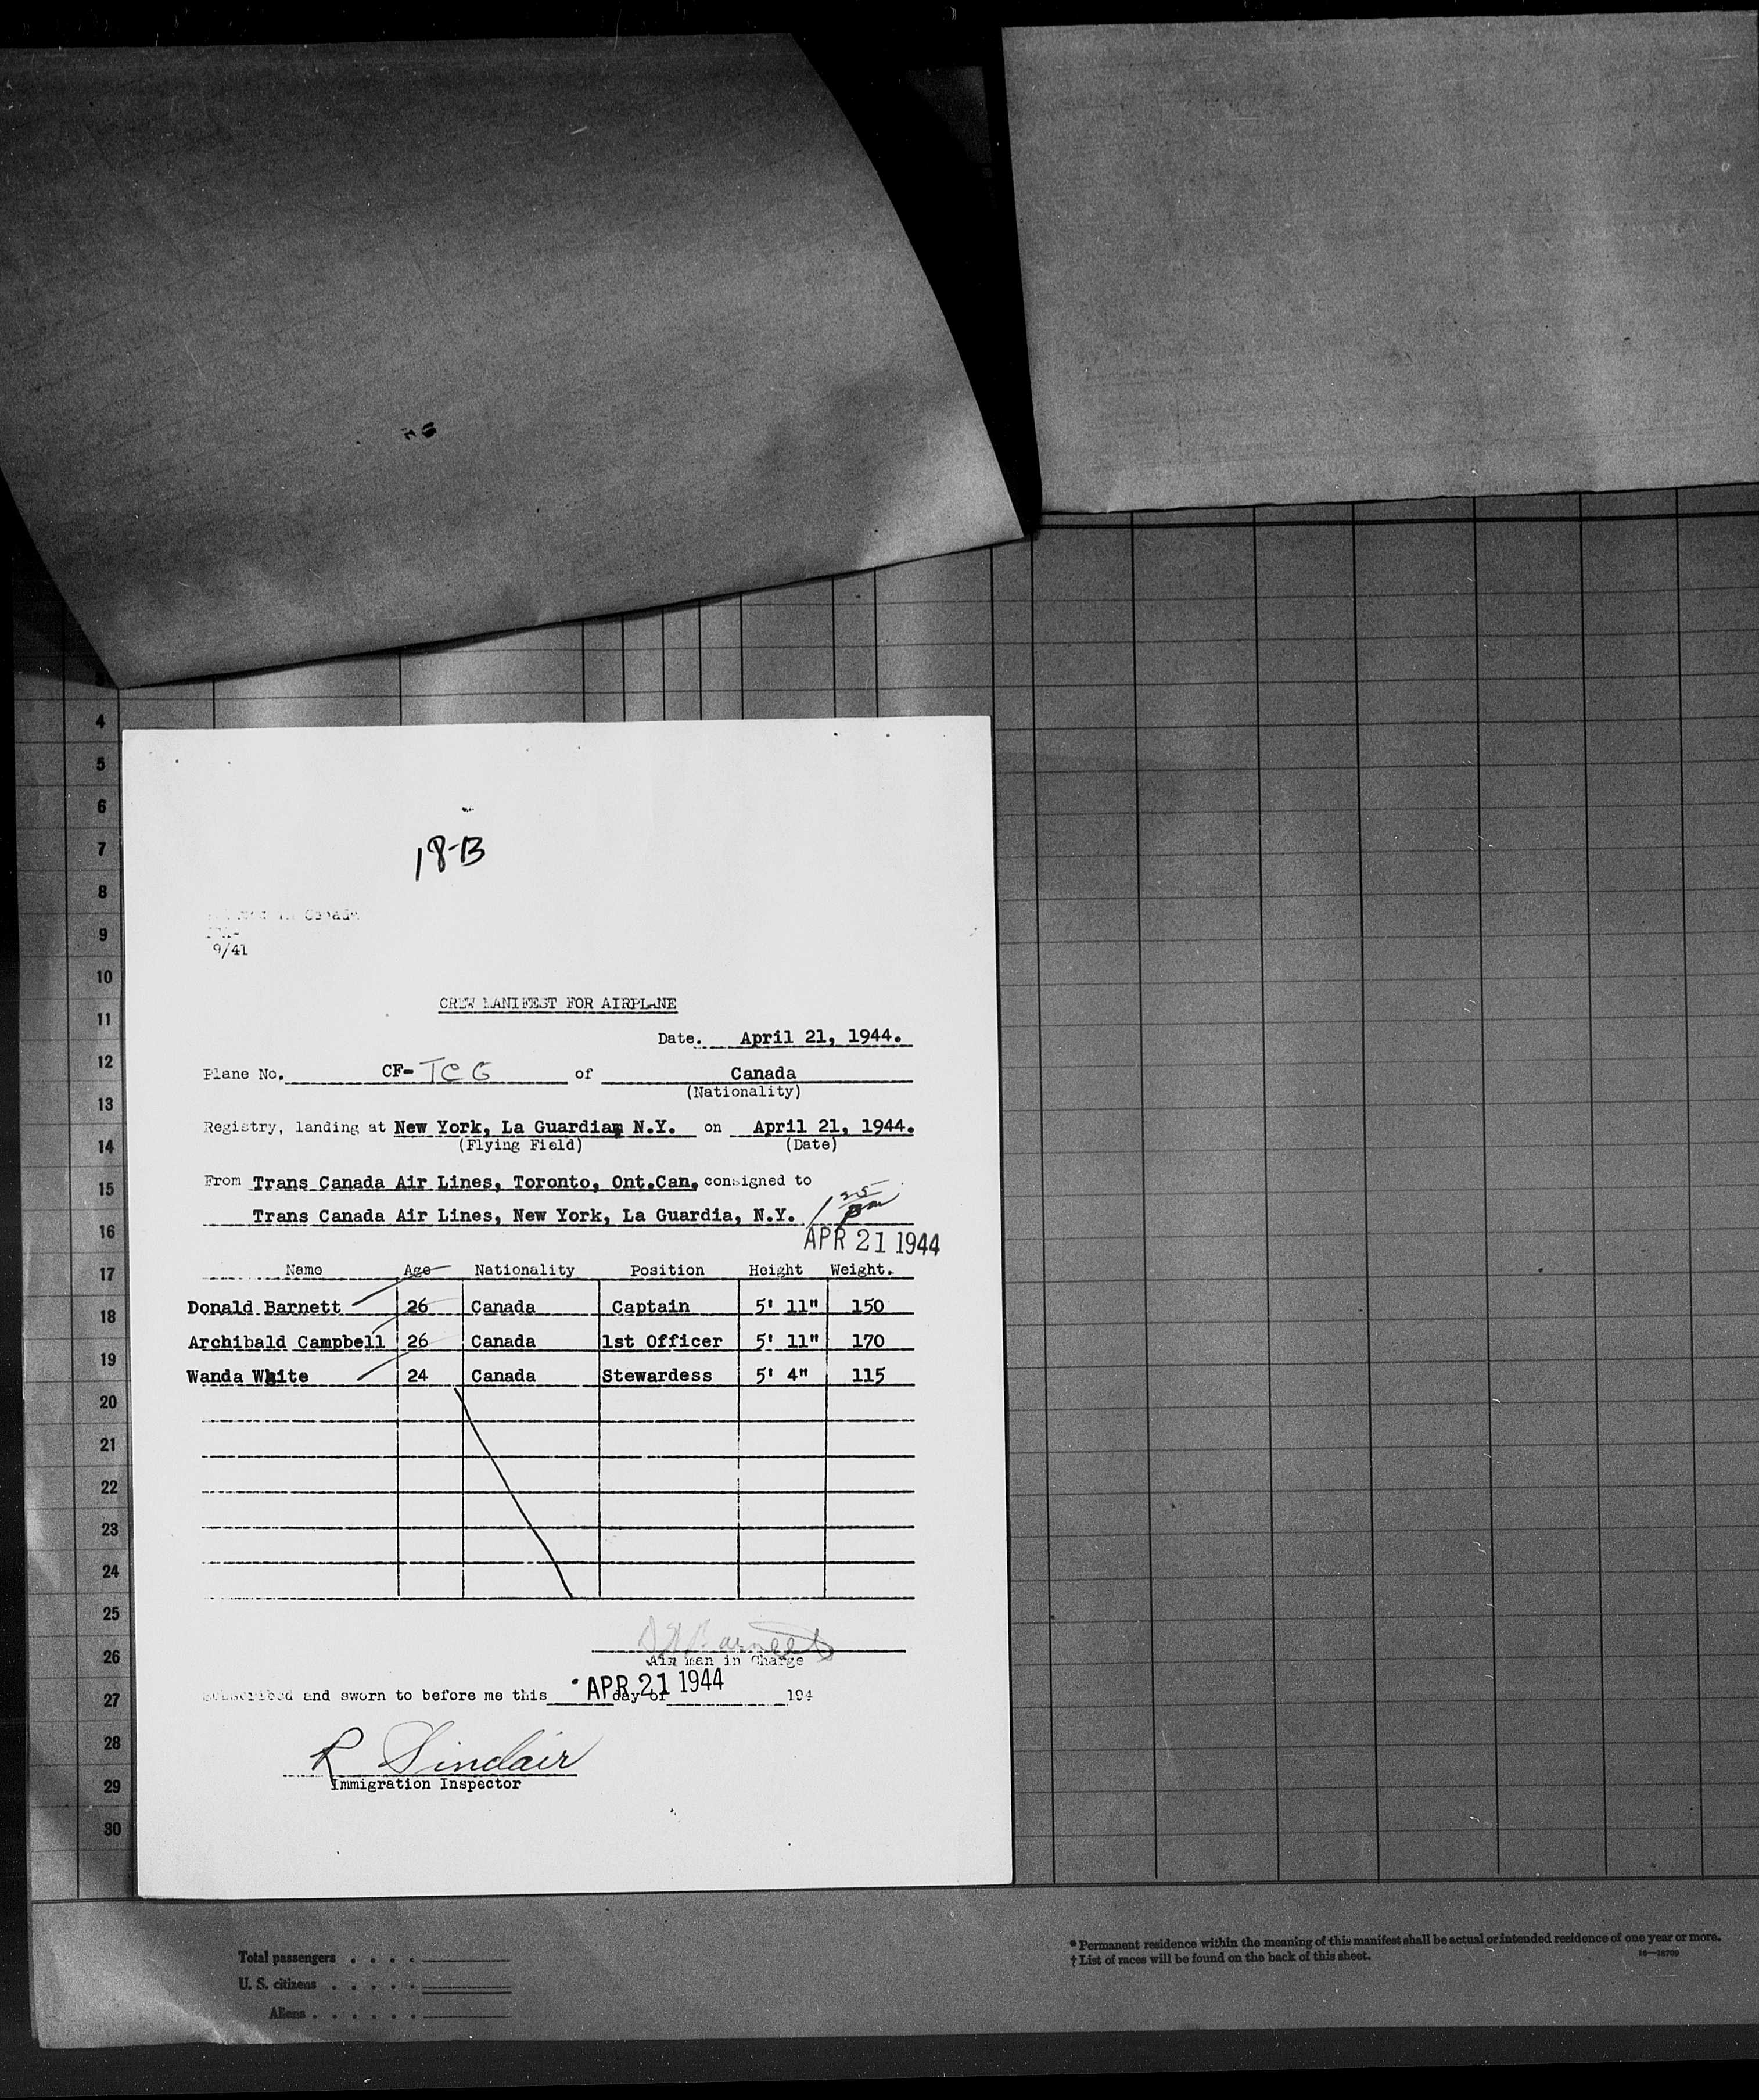 18-B
Canada
9/41
CREW MANIFEST FOR AIRPLANE
Date. April 21, 1944.
Plane No. CF-TCG of Canada
(Nationality)
Registry, landing at New York, La Guardia, N.Y. on April 21, 1944.
(Flying Field) (Date)
From Trans Canada Air Lines, Toronto, Ont.Can. consigned to
Trans Canada Air Lines, New York, La Guardia, N.Y. 1 25 pm
APR 21 1944
Name Age Nationality Position Height Weight.
Donald Barnett 26 Canada Captain 5' 11" 150
Archibald Campbell 26 Canada 1st Officer 5' 11" 170
Wanda White 24 Canada Stewardess 5' 4" 115
Barnett
Air man in Charge
Subscribed and sworn to before me this APR 21 1944 day of 194
R Sinclair
Immigration Inspector
4
5
6
7
8
9
10
11
12
13
14
15
16
17
18
19
20
21
22
23
24
25
26
27
28
29
30
Total passengers . . . .
U. S. citizens . . . . .
Aliens . . . . . .
* Permanent residence within the meaning of this manifest shall be actual or intended residence of one year or more.
† List of races will be found on the back of this sheet.